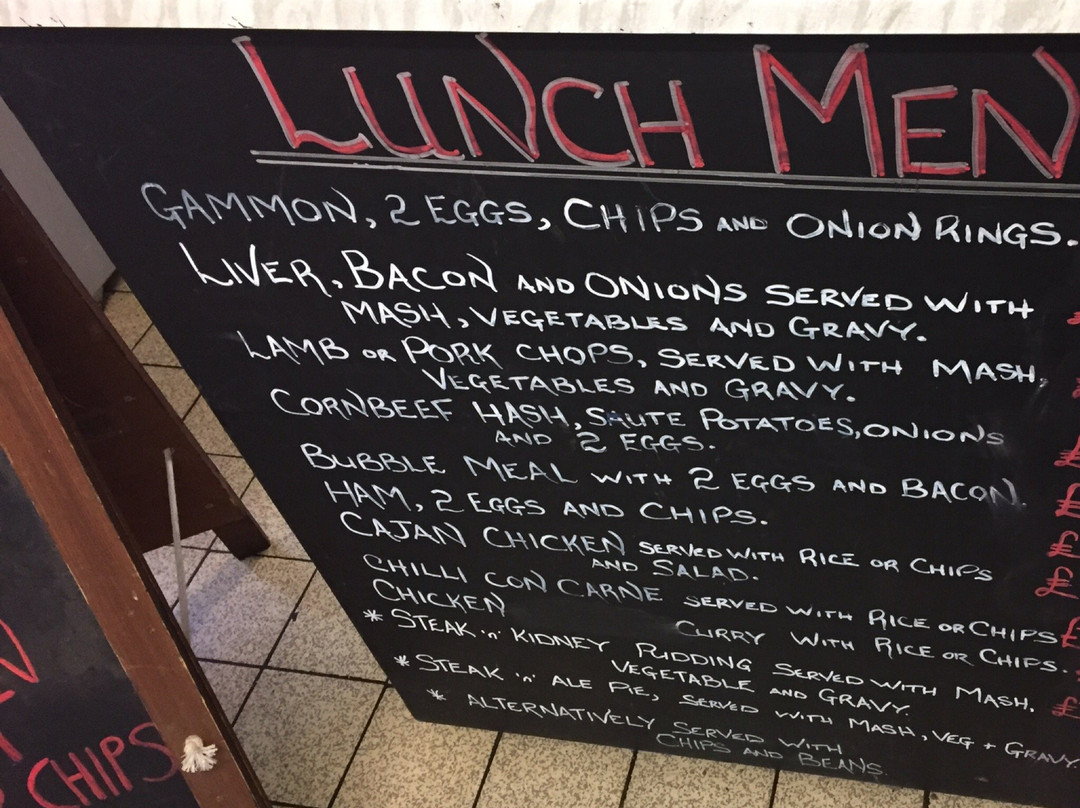 LUNCH MEN
GAMMON, 2 EGGS, CHIPS AND ONION RINGS.
LIVER, BACON AND ONIONS SERVED WITH
MASH, VEGETABLES AND GRAVY.
LAMB OR PORK CHOPS, SERVED WITH MASH,
VEGETABLES AND GRAVY.
CORNBEEF HASH, SAUTE POTATOES, ONIONS
AND 2 EGGS.
BUBBLE MEAL WITH 2 EGGS AND BACON.
HAM, 2 EGGS AND CHIPS.
CAJAN CHICKEN SERVED WITH RICE OR CHIPS
AND SALAD.
CHILLI CON CARNE SERVED WITH RICE OR CHIPS
CHICKEN CURRY WITH RICE OR CHIPS.
* STEAK 'n' KIDNEY PUDDING SERVED WITH MASH.
VEGETABLE AND GRAVY.
* STEAK 'n' ALE PIE, SERVED WITH MASH, VEG + GRAVY.
* ALTERNATIVELY SERVED WITH
CHIPS AND BEANS.
£
£
£
£
£
£
CHIPS